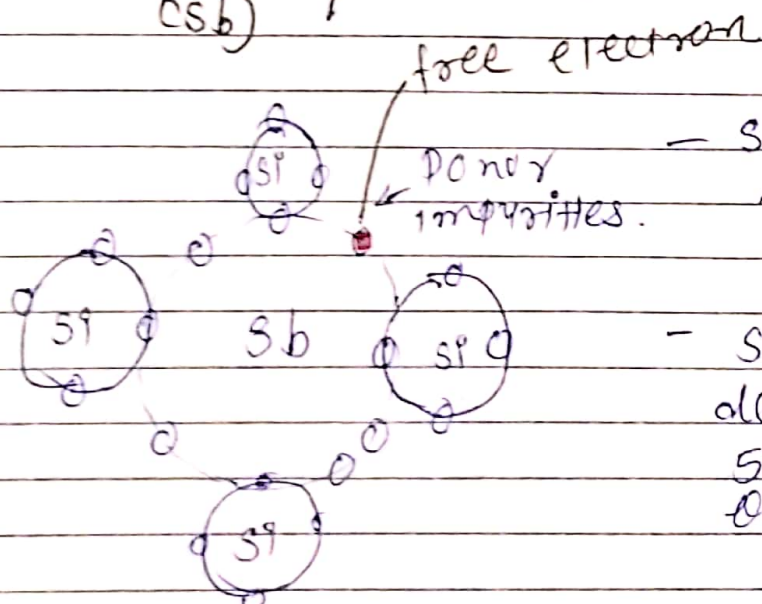 (Sb)
free electron
Si
Donor
impurities.
- S
Si
Sb
Si
- S
all
5
Si